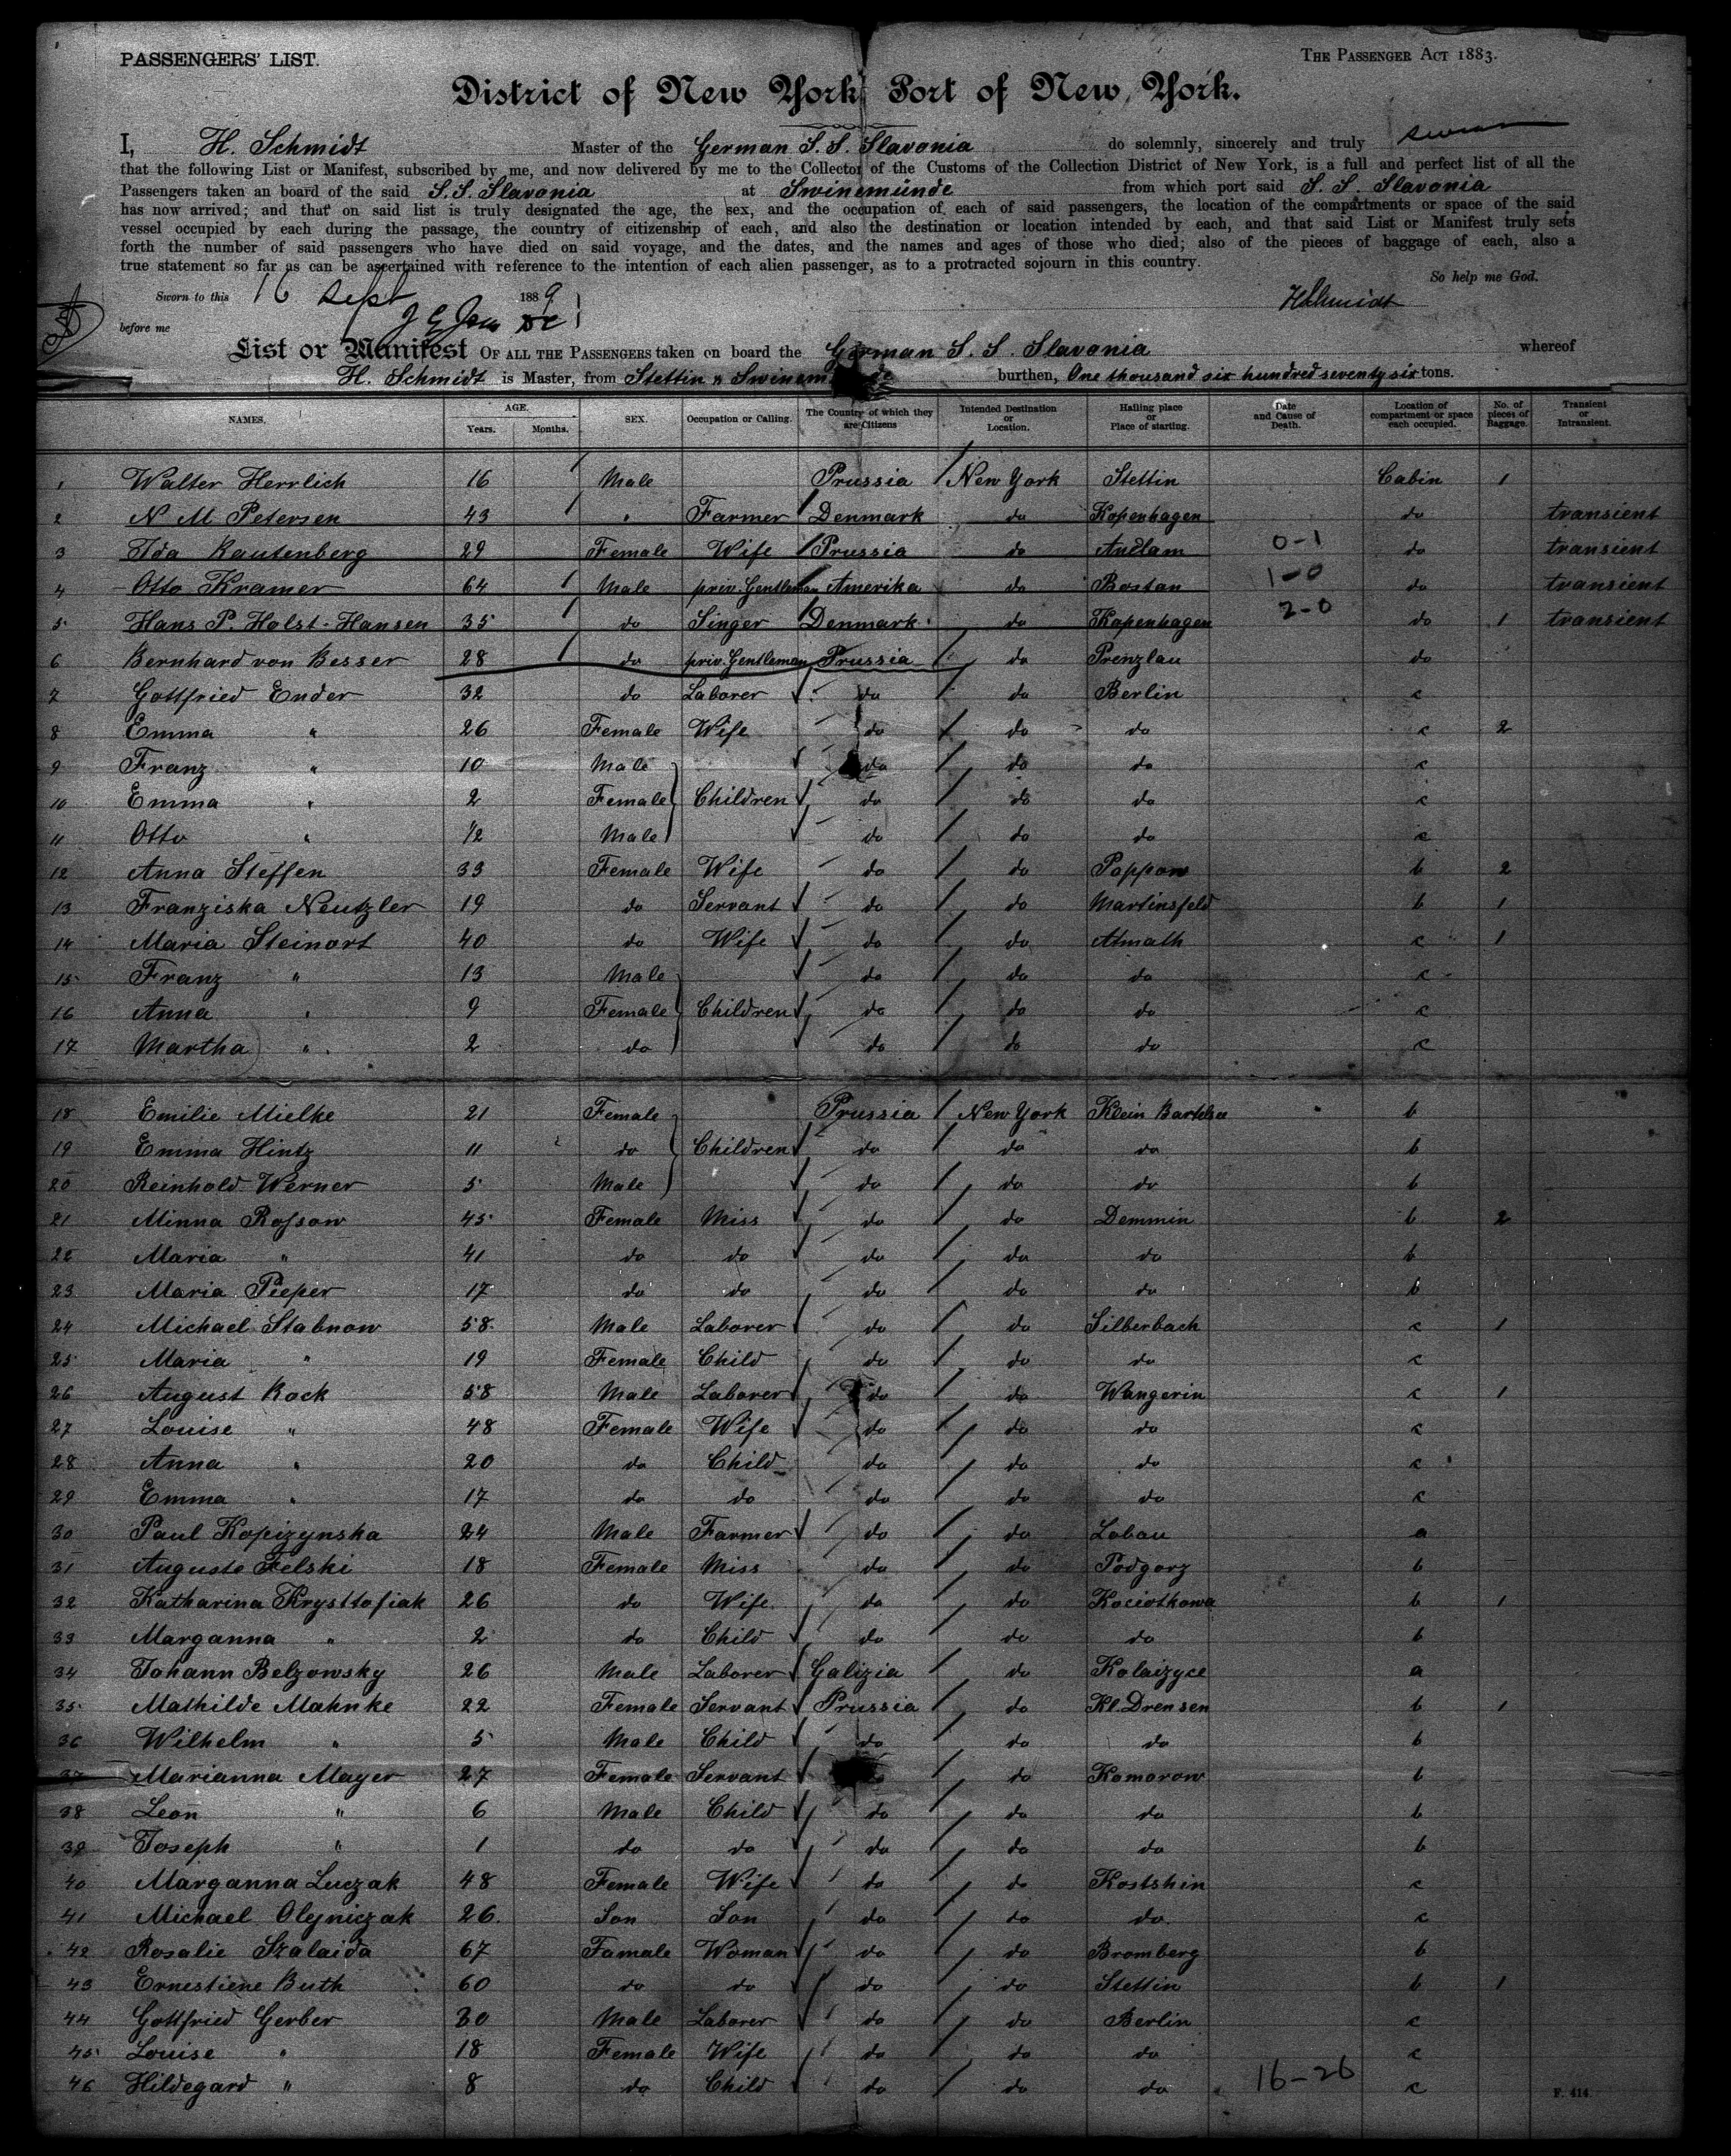 PASSENGERS' LIST.
THE PASSENGER ACT 1883.
District of New York Port of New York.
I, H. Schmidt Master of the German S. S. Slavonia do solemnly, sincerely and truly swear
that the following List or Manifest, subscribed by me, and now delivered by me to the Collector of the Customs of the Collection District of New York, is a full and perfect list of all the
Passengers taken an board of the said S. S. Slavonia at Swinemünde from which port said S. S. Slavonia
has now arrived; and that on said list is truly designated the age, the sex, and the occupation of each of said passengers, the location of the compartments or space of the said
vessel occupied by each during the passage, the country of citizenship of each, and also the destination or location intended by each, and that said List or Manifest truly sets
forth the number of said passengers who have died on said voyage, and the dates, and the names and ages of those who died; also of the pieces of baggage of each, also a
true statement so far as can be ascertained with reference to the intention of each alien passenger, as to a protracted sojourn in this country.
So help me God.
Sworn to this 16 Sept 1889
HSchmidt
before me
List or Manifest OF ALL THE PASSENGERS taken on board the German S. S. Slavonia whereof
H. Schmidt is Master, from Stettin & burthen, One thousand six hundred seventy six tons.
NAMES. AGE. Years. Months. SEX. Occupation or Calling. The Country of which they are Citizens Intended Destination or Location. Hailing place or Place of starting. Date and Cause of Death. Location of compartment or space each occupied. No. of pieces of Baggage. Transient or Intransient.
1 Walter Herrlich 16 Male Prussia New York Stettin Cabin 1
2 N M Petersen 43 " Farmer Denmark do Kopenhagen do transient
3 Ida Rautenberg 29 Female Wife Prussia do Anclam 0-1 do transient
4 Otto Kramer 64 Male priv. Gentleman Amerika do Bostan 1-0 do transient
5 Hans P. Holst-Hansen 35 do Singer Denmark do Kopenhagen 2-0 do 1 transient
6 Bernhard von Besser 28 do priv. Gentleman Prussia do Prenzlau do
7 Gottfried Ender 32 do Laborer do do Berlin c
8 Emma " 26 Female Wife do do do c 2
9 Franz " 10 Male do do do c
10 Emma " 2 Female Children do do do c
11 Otto " 1/2 Male do do do c
12 Anna Steffen 33 Female Wife do do Poppow b 2
13 Franziska Neutzler 19 do Servant do do Martinsfeld b 1
14 Maria Steinort 40 do Wife do do Atmath c 1
15 Franz " 13 Male do do do c
16 Anna " 9 Female Children do do do c
17 Martha " 2 do do do do c
18 Emilie Mielke 21 Female Prussia New York Klein b
19 Emma Hintz 11 do Children do do do b
20 Reinhold Werner 5 Male do do do b
21 Minna Rossow 45 Female Miss do do Demmin b 2
22 Maria " 41 do do do do do b
23 Maria Pieper 17 do do do do do b
24 Michael Stabnow 58 Male Laborer do do Silberbach c 1
25 Maria " 19 Female Child do do do c
26 August Rock 58 Male Laborer do do Wangerin c 1
27 Louise " 48 Female Wife do do do c
28 Anna " 20 do Child do do do c
29 Emma " 17 do do do do do c
30 Paul Kopizynska 24 Male Farmer do do Lobau a
31 Auguste Felski 18 Female Miss do do Podgorz b
32 Katharina Krysttofiak 26 do Wife do do Kociotkowa b 1
33 Marganna " 2 do Child do do do b
34 Johann Belzowsky 26 Male Laborer Galizia do Kolaizyce a
35 Mathilde Mahnke 22 Female Servant Prussia do Kl. Drensen b 1
36 Wilhelm " 5 Male Child do do do b
37 Marianna Mayer 27 Female Servant do Komorow b
38 Leon " 6 Male Child do do do b
39 Joseph " 1 do do do do do b
40 Marganna Luczak 48 Female Wife do do Kostshin c
41 Michael Olejniczak 26 Son Son do do do c
42 Rosalie Szalaida 67 Famale Woman do do Bromberg b
43 Ernestiene Buth 60 do do do do Stettin b 1
44 Gottfried Gerber 30 Male Laborer do do Berlin c
45 Louise " 18 Female Wife do do do c
46 Hildegard " 8 do Child do do do 16-26 c
F. 414.